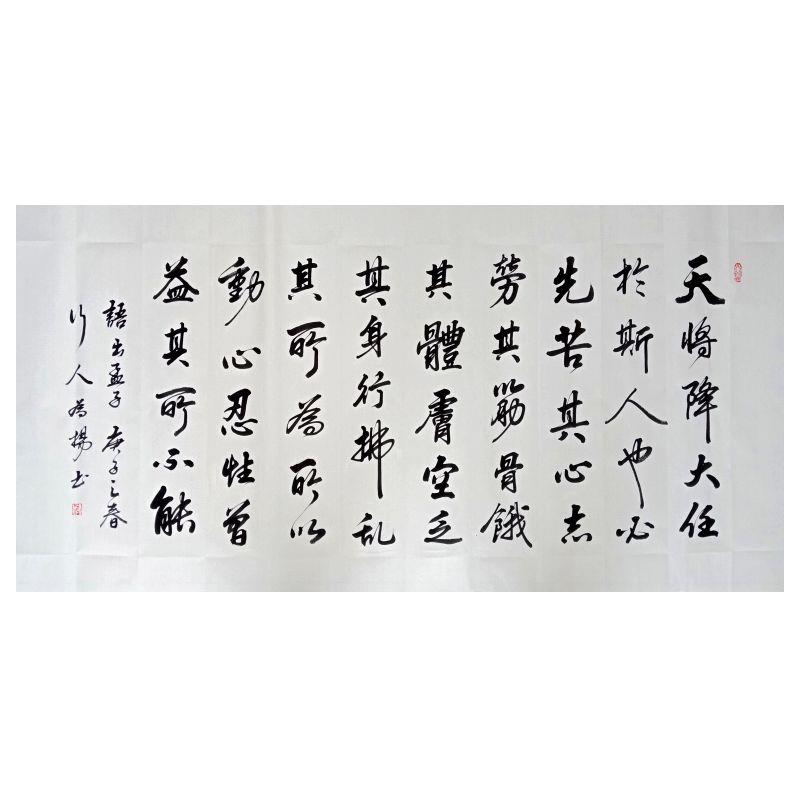 天將降大任
於斯人也必
先苦其心志
勞其筋骨餓
其體膚空乏
其身行拂乱
其所為所以
動心忍性曾
益其所不能
語出孟子庚子之春
行人為揚书